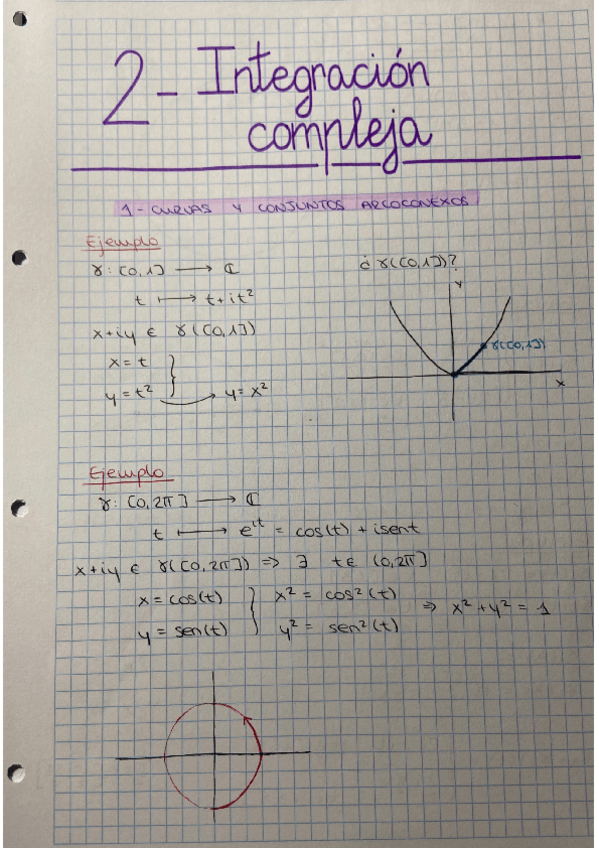 2- Integración
compleja
1- CURVAS Y CONJUNTOS ARCOCONEXOS
Ejemplo
γ: [0,1] ⟶ ℂ
t ⟼ t+it²
x+iy ∈ γ([0,1])
x=t
y=t² } ⟶ y=x²
¿ γ([0,1])?
y
γ([0,1])
x
Ejemplo
γ: [0,2π] ⟶ ℂ
t ⟼ e^it = cos(t) + isent
x+iy ∈ γ([0,2π]) => ∃ t∈ [0,2π]
x=cos(t) } x² = cos²(t)
y=sen(t) } y² = sen²(t) => x²+y²=1